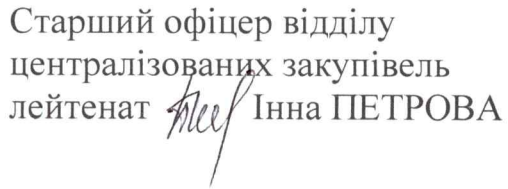 Старший офіцер відділу
централізованих закупівель
лейтенат Інна ПЕТРОВА